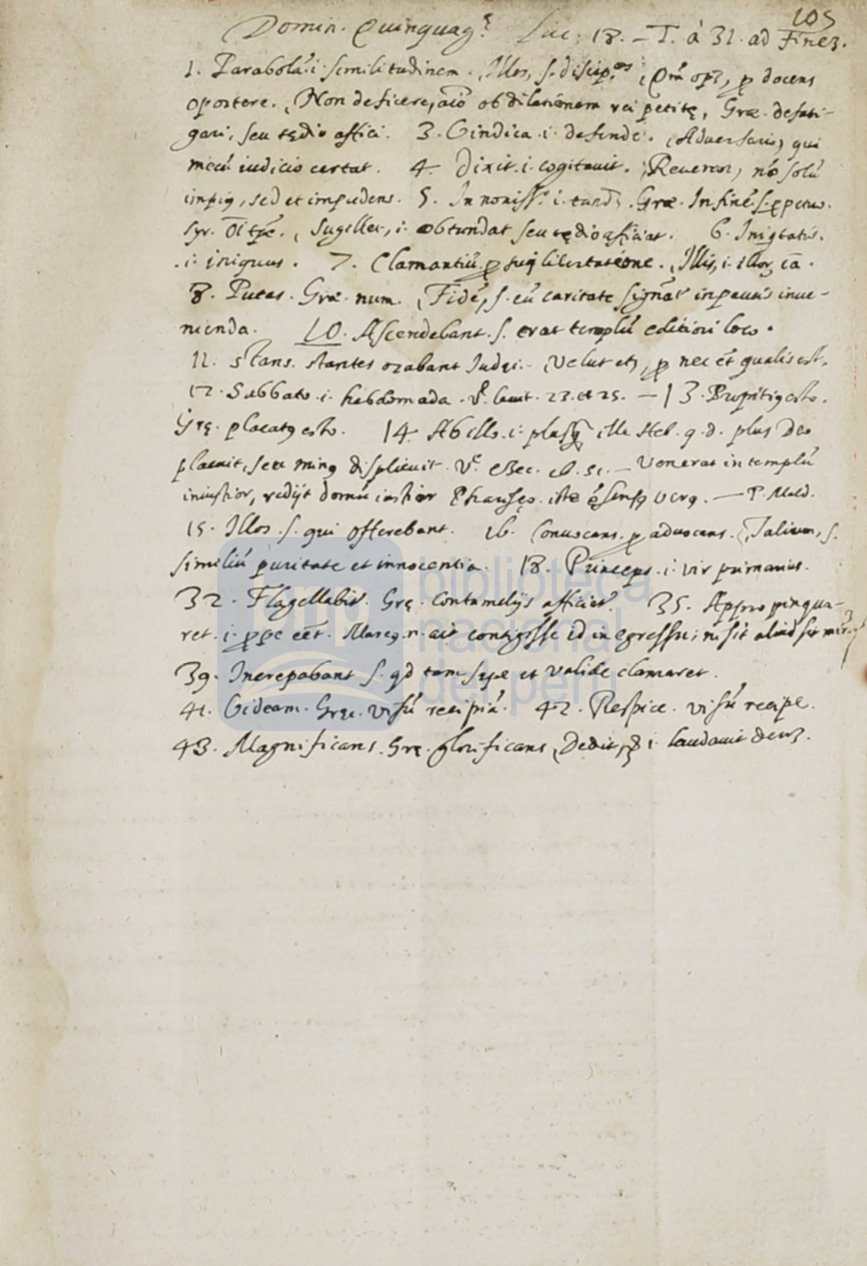 105
Domin. Quinquag.ę Luc. 18. – T. á 31. ad Finẽ.
1. Parabolã .i. similitudinem. Illos, s. discip.os Qm̃ op3, docens
oportere. Non deficere, aĩo ob dilationem rei petitę, Græ. defati-
gari, seu tędio affici. 3. Vindica .i. defende. Adversario, qui
mecũ iudicio certat. 4. Dixit .i. cogitauit. Reuereor, nõ solũ
impiꝰ, sed et impudens. 5. In nouiss.º i. tand. Græ. In finẽ s. perpetuo.
Syr. Oĩ tpẽ. Sugillet, i. obtundat seu tędio afficiat. 6. Iniqtatis.
.i. iniquus. 7. Clamantiũ suą libertatione. Illis, i. illor, cã.
8. Putas. Græ. num. Fidẽ, s. cũ caritate in paucis inue-
nienda. 10. Ascendebant. s. erat templũ editiori loco.
11. Stans. stantes orabant Iudęi. Velut et, nec ẽt qualis est.
12. Sabbato .i. hebdomada. vę. Leuit. 23. et 25. – 13. Propitiꝰ esto.
Grę. placatꝰ esto. 14. Ab illo .i. plusq̃ ille Heb. q.d. plus Deo
placuit, seu minꝰ displicuit. Vę. Ezec. 16. 51. – Venerat in templũ
iniustior, redijt domũ iustior Pharisęo. iste ẽ sensꝰ verꝰ. – P. Mald.
15. Illos. s. qui offerebant. 16. Conuocans. aduocans. Talium, s.
similiũ puritate et innocentia. 18. Princeps .i. vir primarius.
32. Flagellabit. Grę. contumelijs afficiet. 35. Appropinqua-
ret .i. ppe eẽt. Marcꝰ .n. ait contigisse id in egressu; nisi sit aliud
39. Increpabant s. qd tam sępe et valide clamaret.
41. Videam. Gręc. visũ recipiã. 42. Respice. visũ recipe.
43. Magnificans. Grę. glorificans. Dedit, i. laudauit deum.
biblioteca
nacional
del perú